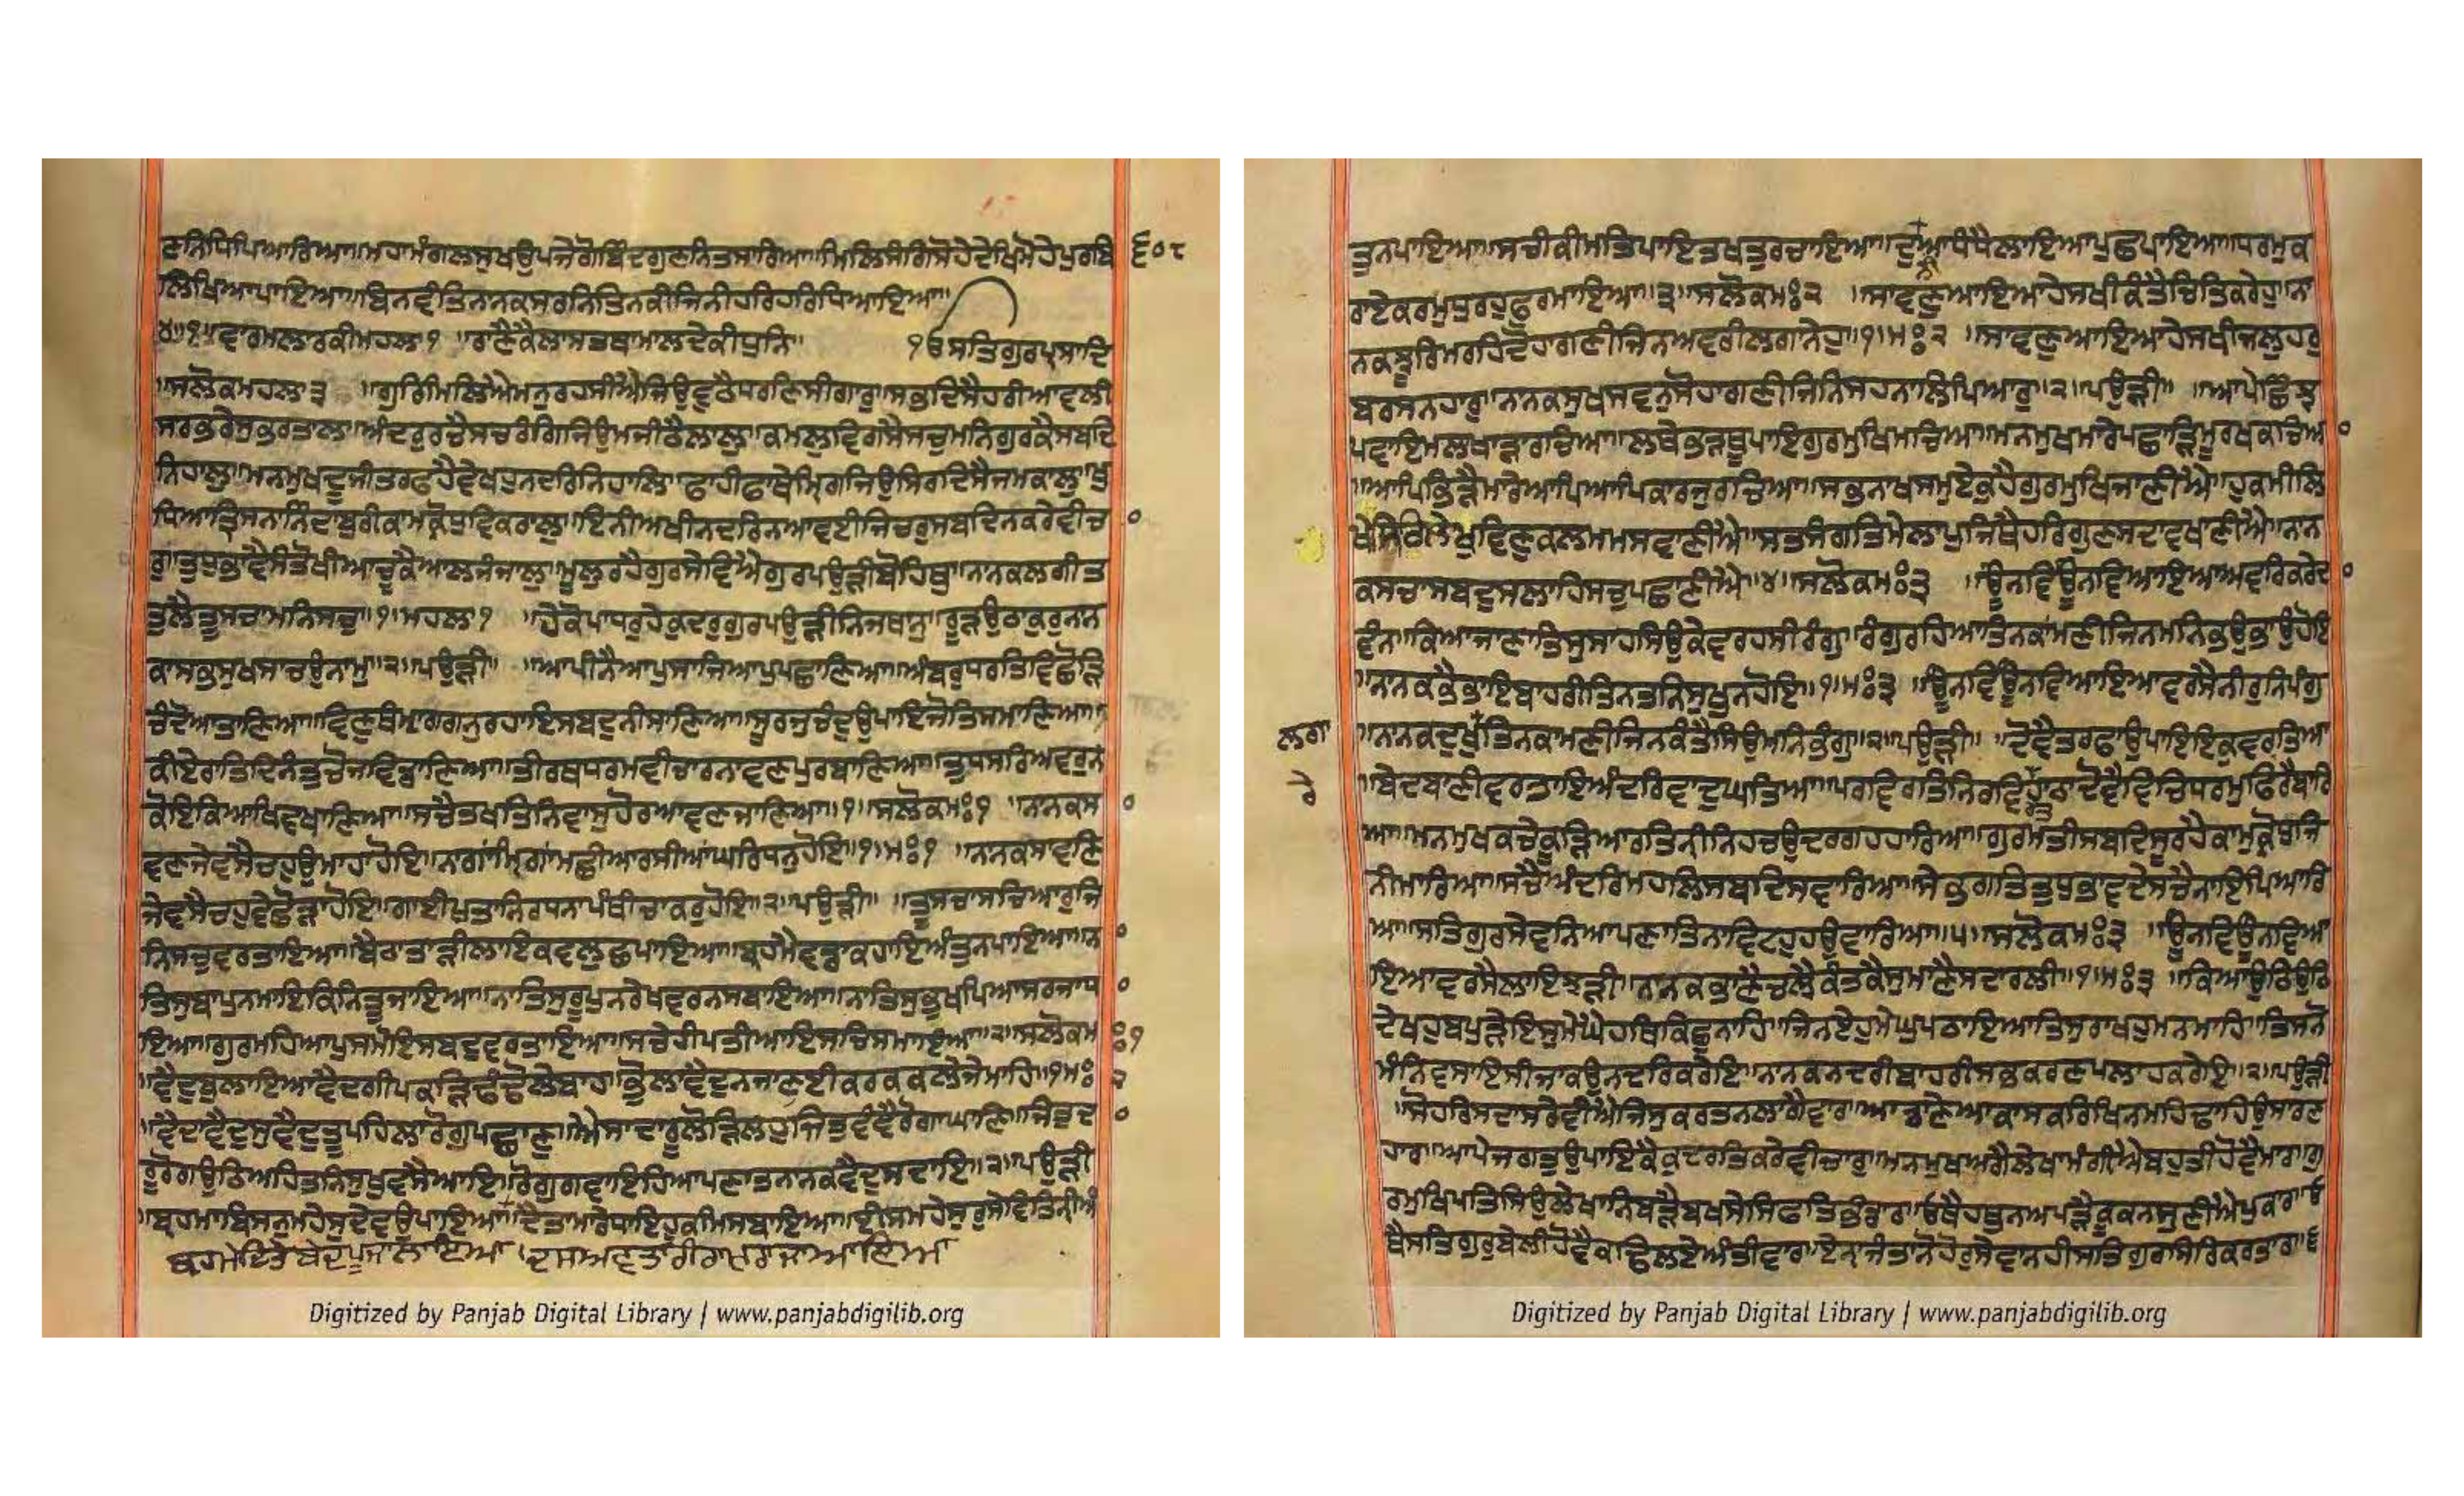 ਣਨਿਧਿਪਿਆਰਿਆ॥ਮਹਾਮੰਗਲਸੂਖਉਪਜੇਗੋਬਿੰਦਗੁਣਨਿਤਸਾਰਿਆ॥ਮਿਲਿਸੰਗਿਸੋਹੇਦੇਖਿਮੋਹੇਪੁਰਬਿ ੬੦੮
ਲਿਖਿਆਪਾਇਆ॥ਬਿਨਵੰਤਿਨਾਨਕਸਰਨਿਤਿਨਕੀਜਿਨੀਹਰਿਹਰਿਧਿਆਇਆ॥
੪॥੧॥ਵਾਰਮਲਾਰਕੀਮਹਲਾ੧ ॥ਰਾਣੈਕੈਲਾਸਤਥਾਮਾਲਦੇਕੀਧੁਨਿ॥ ੴਸਤਿਗੁਰਪ੍ਰਸਾਦਿ
॥ਸਲੋਕਮਹਲਾ੩ ॥ਗੁਰਿਮਿਲਿਐਮਨੁਰਹਸੀਐਜਿਉਵੁਠੈਧਰਣਿਸੀਗਾਰੁ॥ਸਭਦਿਸੈਹਰੀਆਵਲੀ
ਸਰਭਰੇਸੁਭਰਤਾਲ॥ਅੰਦਰੁਰਚੈਸਚਰੰਗਿਜਿਉਮਜੀਠੈਲਾਲੁ॥ਕਮਲੁਵਿਗਸੈਸਚੁਮਨਿਗੁਰਕੈਸਬਦਿ
ਨਿਹਾਲੁ॥ਮਨਮੁਖਦੂਜੀਤਰਫਹੈਵੇਖਹੁਨਦਰਿਨਿਹਾਲਿ॥ਫਾਹੀਫਾਥੇਮਿਰਗਜਿਉਸਿਰਿਦਿਸੈਜਮਕਾਲੁ॥ਖੁ
ਧਿਆਤ੍ਰਿਸਨਾਨਿੰਦਾਬੁਰੀਕਾਮਕ੍ਰੋਧੁਵਿਕਰਾਲੁ॥ਇਨੀਅਖੀਨਦਰਿਨਆਵਈਜਿਚਰੁਸਬਦਿਨਕਰੇਵੀਚ
ਰੁ॥ਤੁਧੁਭਾਵੈਸੰਤੋਖੀਆਚੂਕੈਆਲਜੰਜਾਲੁ॥ਮੂਲੁਰਹੈਗੁਰਸੇਵਿਐਗੁਰਪਉੜੀਬੋਹਿਥੁ॥ਨਾਨਕਲਗੀਤ
ਤੁਲੈਤੂਸਚਾਮਨਿਸਚੁ॥੧॥ਮਹਲਾ੧ ॥ਹੇਕੋਪਾਧਰੁਹੇਕੁਦਰੁਗੁਰਪਉੜੀਨਿਜਥਾਨੁ॥ਰੂੜਉਠਾਕੁਰੁਨਾਨ
ਕਾਸਭਸੁਖਸਾਚਉਨਾਮੁ॥੨॥ਪਉੜੀ॥ ॥ਆਪੀਨੈਆਪੁਸਾਜਿਆਪੁਪਛਾਣਿਆ॥ਅੰਬਰੁਧਰਤਿਵਿਛੋੜਿ
ਚੰਦੋਆਤਾਣਿਆ॥ਵਿਣੁਥੰਮਾਗਗਨੁਰਹਾਇਸਬਦੁਨੀਸਾਣਿਆ॥ਸੂਰਜੁਚੰਦੁਉਪਾਇਜੋਤਿਸਮਾਣਿਆ॥
ਕੀਏਰਾਤਿਦਿਨੰਤੁਚੋਜਵਿਡਾਣਿਆ॥ਤੀਰਥਧਰਮਵੀਚਾਰਨਾਵਣਪੁਰਬਾਣਿਆ॥ਤੁਧੁਸਰਿਅਵਰੁਨ
ਕੋਇਕਿਆਖਿਵਖਾਣਿਆ॥ਸਚੈਤਖਤਿਨਿਵਾਸੁਹੋਰਆਵਣਜਾਣਿਆ॥੧॥ਸਲੋਕਮਃ੧ ॥ਨਾਨਕਸ
ਵਣਿਜੇਵਸੈਚਹੁਓਮਾਹਾਹੋਇ॥ਨਾਗਾਂਮਿਰਗਾਂਮਛੀਆਂਰਸੀਆਂਘਰਿਧਨੁਹੋਇ॥੧॥ਮਃ੧ ॥ਨਾਨਕਸਾਵਣਿ
ਜੇਵਸੈਚਹੁਵੇਛੋੜਾਹੋਇ॥ਗਾਈਪੁਤਾਨਿਰਧਨਾਪੰਥੀਚਾਕਰੁਹੋਇ॥੨॥ਪਉੜੀ॥ ॥ਤੂਸਚਾਸਚਿਆਰੁਜਿ
ਨਿਸਚੁਵਰਤਾਇਆ॥ਬੈਠਾਤਾੜੀਲਾਇਕਵਲੁਛਪਾਇਆ॥ਬ੍ਰਹਮੈਵਡਾਕਹਾਇਅੰਤੁਨਪਾਇਆ॥ਨਾ
ਤਿਸੁਬਾਪੁਨਮਾਇਕਿਨਿਤੂਜਾਇਆ॥ਨਾਤਿਸੁਰੂਪੁਨਰੇਖਵਰਨਸਬਾਇਆ॥ਨਾਤਿਸੁਭੁਖਪਿਆਸਰਜਾਧ
ਇਆ॥ਗੁਰਮਹਿਆਪੁਸਮੋਇਸਬਦੁਵਰਤਾਇਆ॥ਸਚੇਹੀਪਤੀਆਇਸਚਿਸਮਾਇਆ॥੨॥ਸਲੋਕਮਃ੧
॥ਵੈਦੁਬੁਲਾਇਆਵੈਦਗੀਪਕੜਿਢੰਢੋਲੇਬਾਹ॥ਭੋਲਾਵੈਦੁਨਜਾਣਈਕਰਕਕਲੇਜੇਮਾਹਿ॥੧॥ਮਃ੨
॥ਵੈਦਾਵੈਦੁਸੁਵੈਦੁਤੂਪਹਿਲਾਰੋਗੁਪਛਾਣੁ॥ਐਸਾਦਾਰੂਲੋੜਿਲਹੁਜਿਤੁਵੰਞੈਰੋਗਾਘਾਣਿ॥ਜਿਤੁਦ
ਰੂਰੋਗਉਠਿਅਹਿਤਨਿਸੁਖੁਵਸੈਆਇ॥ਰੋਗੁਗਵਾਇਹਿਆਪਣਾਤਨਾਨਕਵੈਦੁਸਦਾਇ॥੨॥ਪਉੜੀ
॥ਬ੍ਰਹਮਾਬਿਸਨੁਮਹੇਸੁਦੇਵਉਪਾਇਆ॥ਦੈਤਮਾਰੇਧਾਇਹੁਕਮਿਸਬਾਇਆ॥ਈਸਮਹੇਸੁਰੁਸੇਵਤਿਨੀਅੰ
ਬ੍ਰਹਮੇਦਿਤੇਬੇਦਪੂਜਾਲਾਇਆ॥ਦਸਅਵਤਾਰੀਰਾਮਰਾਜਾਆਇਆ
ਤੁਨਪਾਇਆ॥ਸਚੀਕੀਮਤਿਪਾਇਤਖਤੁਰਚਾਇਆ॥ਦੁਨੀਆਧੰਧੈਲਾਇਆਪੁਛਪਾਇਆ॥ਧਰਮੁਕ
ਰਾਏਕਰਮਧੁਰਹੁਫੁਰਮਾਇਆ॥੩॥ਸਲੋਕਮਃ੨ ॥ਸਾਵਣੁਆਇਆਹੇਸਖੀਕੰਤੈਚਿਤਿਕਰੇਹੁ॥ਨਾ
ਨਕਝੂਰਿਮਰਹਿਦੋਹਾਗਣੀਜਿਨਅਵਰੀਲਾਗਾਨੇਹੁ॥੧॥ਮਃ੨ ॥ਸਾਵਣੁਆਇਆਹੇਸਖੀਜਲਹਰੁ
ਬਰਸਨਹਾਰੁ॥ਨਾਨਕਸੁਖਸਵਨੁਸੋਹਾਗਣੀਜਿਨਿਸਹਨਾਲਿਪਿਆਰੁ॥੨॥ਪਉੜੀ॥ ॥ਆਪੇਛਿੰਝ
ਪਵਾਇਮਲਾਖਾੜਾਰਚਿਆ॥ਲਥੇਭੜਥੂਪਾਇਗੁਰਮੁਖਿਮਚਿਆ॥ਮਨਮੁਖਮਾਰੇਪਛਾੜਿਮੂਰਖਕਚਿਆ
॥ਆਪਿਭਿੜੈਮਾਰੇਆਪਿਆਪਿਕਾਰਜੁਰਚਿਆ॥ਸਭਨਾਖਸਮੁਏਕੁਹੈਗੁਰਮੁਖਿਜਾਣੀਐ॥ਹੁਕਮੀਲਿ
ਖੈਸਿਰਿਲੇਖੁਵਿਣੁਕਲਮਮਸਵਾਣੀਐ॥ਸਤਸੰਗਤਿਮੇਲਾਪੁਜਿਥੈਹਰਿਗੁਣਸਦਾਵਖਾਣੀਐ॥ਨਾਨ
ਕਸਚਾਸਬਦੁਸਲਾਹਿਸਚੁਪਛਾਣੀਐ॥੪॥ਸਲੋਕਮਃ੩ ॥ਊਨਵਿਊਨਵਿਆਇਆਅਵਰਿਕਰੇਦ
ਵੰਨ॥ਕਿਆਜਾਣਾਤਿਸੁਸਾਹਸਿਉਕੇਵਰਹਸੀਰੰਗੁ॥ਰੰਗੁਰਹਿਆਤਿਨਕਾਮਣੀਜਿਨਮਨਿਭਉਭਾਉਹੋਇ
॥ਨਾਨਕਭੈਭਾਇਬਾਹਰੀਤਿਨਤਨਿਸੁਖੁਨਹੋਇ॥੧॥ਮਃ੩ ॥ਊਨਵਿਊਨਵਿਆਇਆਵਰਸੈਨੀਰੁਨਿਪੰਗੁ
ਲਗਾ ॥ਨਾਨਕਦੁਖੁਤਿਨਕਾਮਣੀਜਿਨਕੰਤੈਸਿਉਮਨਿਭੰਗੁ॥੨॥ਪਉੜੀ॥ ॥ਦੋਵੈਤਰਫਾਉਪਾਇਇਕੁਵਰਤਿਆ
ਰੇ ॥ਬੇਦਬਾਣੀਵਰਤਾਇਅੰਦਰਿਵਾਦੁਘਤਿਆ॥ਪਰਵਿਰਤਿਨਿਰਵਿਰਤਿਹਾਠਾਦੋਵੈਵਿਚਿਧਰਮੁਫਿਰੈਰੈਬਾਰਿ
ਆ॥ਮਨਮੁਖਕਚੇਕੂੜਿਆਰਤਿਨੀਨਿਹਚਉਦਰਗਹਹਾਰਿਆ॥ਗੁਰਮਤੀਸਬਦਿਸੂਰਹੈਕਾਮੁਕ੍ਰੋਧੁਜਿ
ਨੀਮਾਰਿਆ॥ਸਚੈਅੰਦਰਿਮਹਲਿਸਬਦਿਸਵਾਰਿਆ॥ਸੇਭਗਤਿਤੁਧੁਭਾਵਦੇਸਚੈਨਾਇਪਿਆਰਿ
ਆ॥ਸਤਿਗੁਰਸੇਵਨਿਆਪਣਾਤਿਨਾਵਿਟਹੁਹਉਵਾਰਿਆ॥੫॥ਸਲੋਕਮਃ੩ ॥ਊਨਵਿਊਨਵਿਆ
ਇਆਵਰਸੈਲਾਇਝੜੀ॥ਨਾਨਕਭਾਣੈਚਲੈਕੰਤਕੈਸੁਮਾਣੈਸਦਾਰਲੀ॥੧॥ਮਃ੩ ॥ਕਿਆਉਠਿਉਠਿ
ਦੇਖਹੁਬਪੁੜੇਇਸੁਮੇਘੈਹਥਿਕਿਛੁਨਾਹਿ॥ਜਿਨਿਏਹੁਮੇਘੁਪਠਾਇਆਤਿਸੁਰਾਖਹੁਮਨਮਾਹਿ॥ਤਿਸਨੋ
ਮੰਨਿਵਸਾਇਸੀਜਾਕਉਨਦਰਿਕਰੇਇ॥ਨਾਨਕਨਦਰੀਬਾਹਰੀਸਭਕਰਣਪਲਾਹਕਰੇਇ॥੨॥ਪਉੜੀ
॥ਸੋਹਰਿਸਦਾਸਰੇਵੀਐਜਿਸੁਕਰਤਨਲਾਗੈਵਾਰ॥ਆਡਾਣੇਆਕਾਸਕਰਿਖਿਨਮਹਿਢਾਹਿਉਸਾਰਣ
ਹਾਰ॥ਆਪੇਜਗਤੁਉਪਾਇਕੈਕੁਦਰਤਿਕਰੇਵੀਚਾਰੁ॥ਮਨਮੁਖਅਗੈਲੇਖਾਮੰਗੀਐਬਹੁਤੀਹੋਵੈਮਾਰ॥ਗੁ
ਰਮੁਖਿਪਤਿਸਿਉਲੇਖਾਨਿਬੜੈਬਖਸੇਸਿਫਤਿਭੰਡਾਰ॥ਓਥੈਹਥੁਨਅਪੜੈਕੂਕਨਸੁਣੀਐਪੁਕਾਰ॥ਓ
ਥੈਸਤਿਗੁਰੁਬੇਲੀਹੋਵੈਕਢਿਲਏਅੰਤੀਵਾਰ॥ਏਨਾਜੰਤਾਨੋਹੋਰੁਸੇਵਾਨਹੀਸਤਿਗੁਰਸਿਰਿਕਰਤਾਰ॥੬
Digitized by Panjab Digital Library | www.panjabdigilib.org
Digitized by Panjab Digital Library | www.panjabdigilib.org